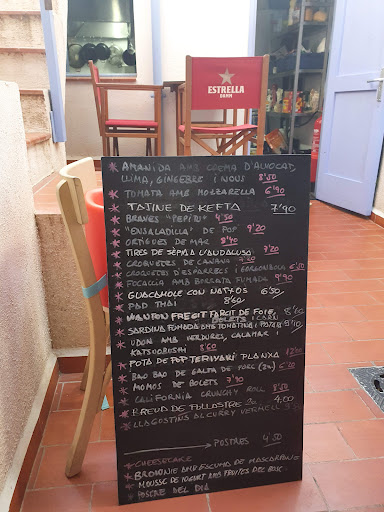 ESTRELLA
DAMM
AMANIDA AMB CREMA D'ALVOCAT,
LLIMA, GINGEBRE I NOUS 8'50
TOMATA AMB MOZZARELLA 6'90
TAJINE DE KEFTA 7'90
BRAVES "PEPITU" 4'50
"ENSALADILLA" DE POP 9'20
ORTIGUES DE MAR 8'40
TIRES DE SÈPIA L'ANDALUSA 7'20
CROQUETES DE CANANA
CROQUETES D'ESPARRECS I GORGONZOLA 6'50
FOCACCIA AMB BURRATA FUMADA 9'90
GUACAMOLE CON NATXOS 6'50
PAD THAI 8'60
WANTON FREGIT FARCIT DE FOIE, 8'60
BOLETS I CARN
SARDINA FUMADA AMB TOMATINA I PATATA 9'10
UDON AMB VERDURES, CALAMAR I
KATSUOBUSHI 8'60
POTA DE POP TERIYAKI PLANXA
BAO BAO DE GALTA DE PORC (2u) 6'20
MOMOS DE BOLETS 7'90
CALIFORNIA CRUNCHY ROLL 8'50
BREUA DE FOLLOSTRE 2u. 4,00
LLAGOSTINS AL CURRY VERMELL
POSTRES 4'50
CHEESECAKE
BROWNIE AMB ESCUMA DE MASCARPONE
MOUSSE DE IOGURT AMB FRUITES DEL BOSC
POSTRE DEL DIA